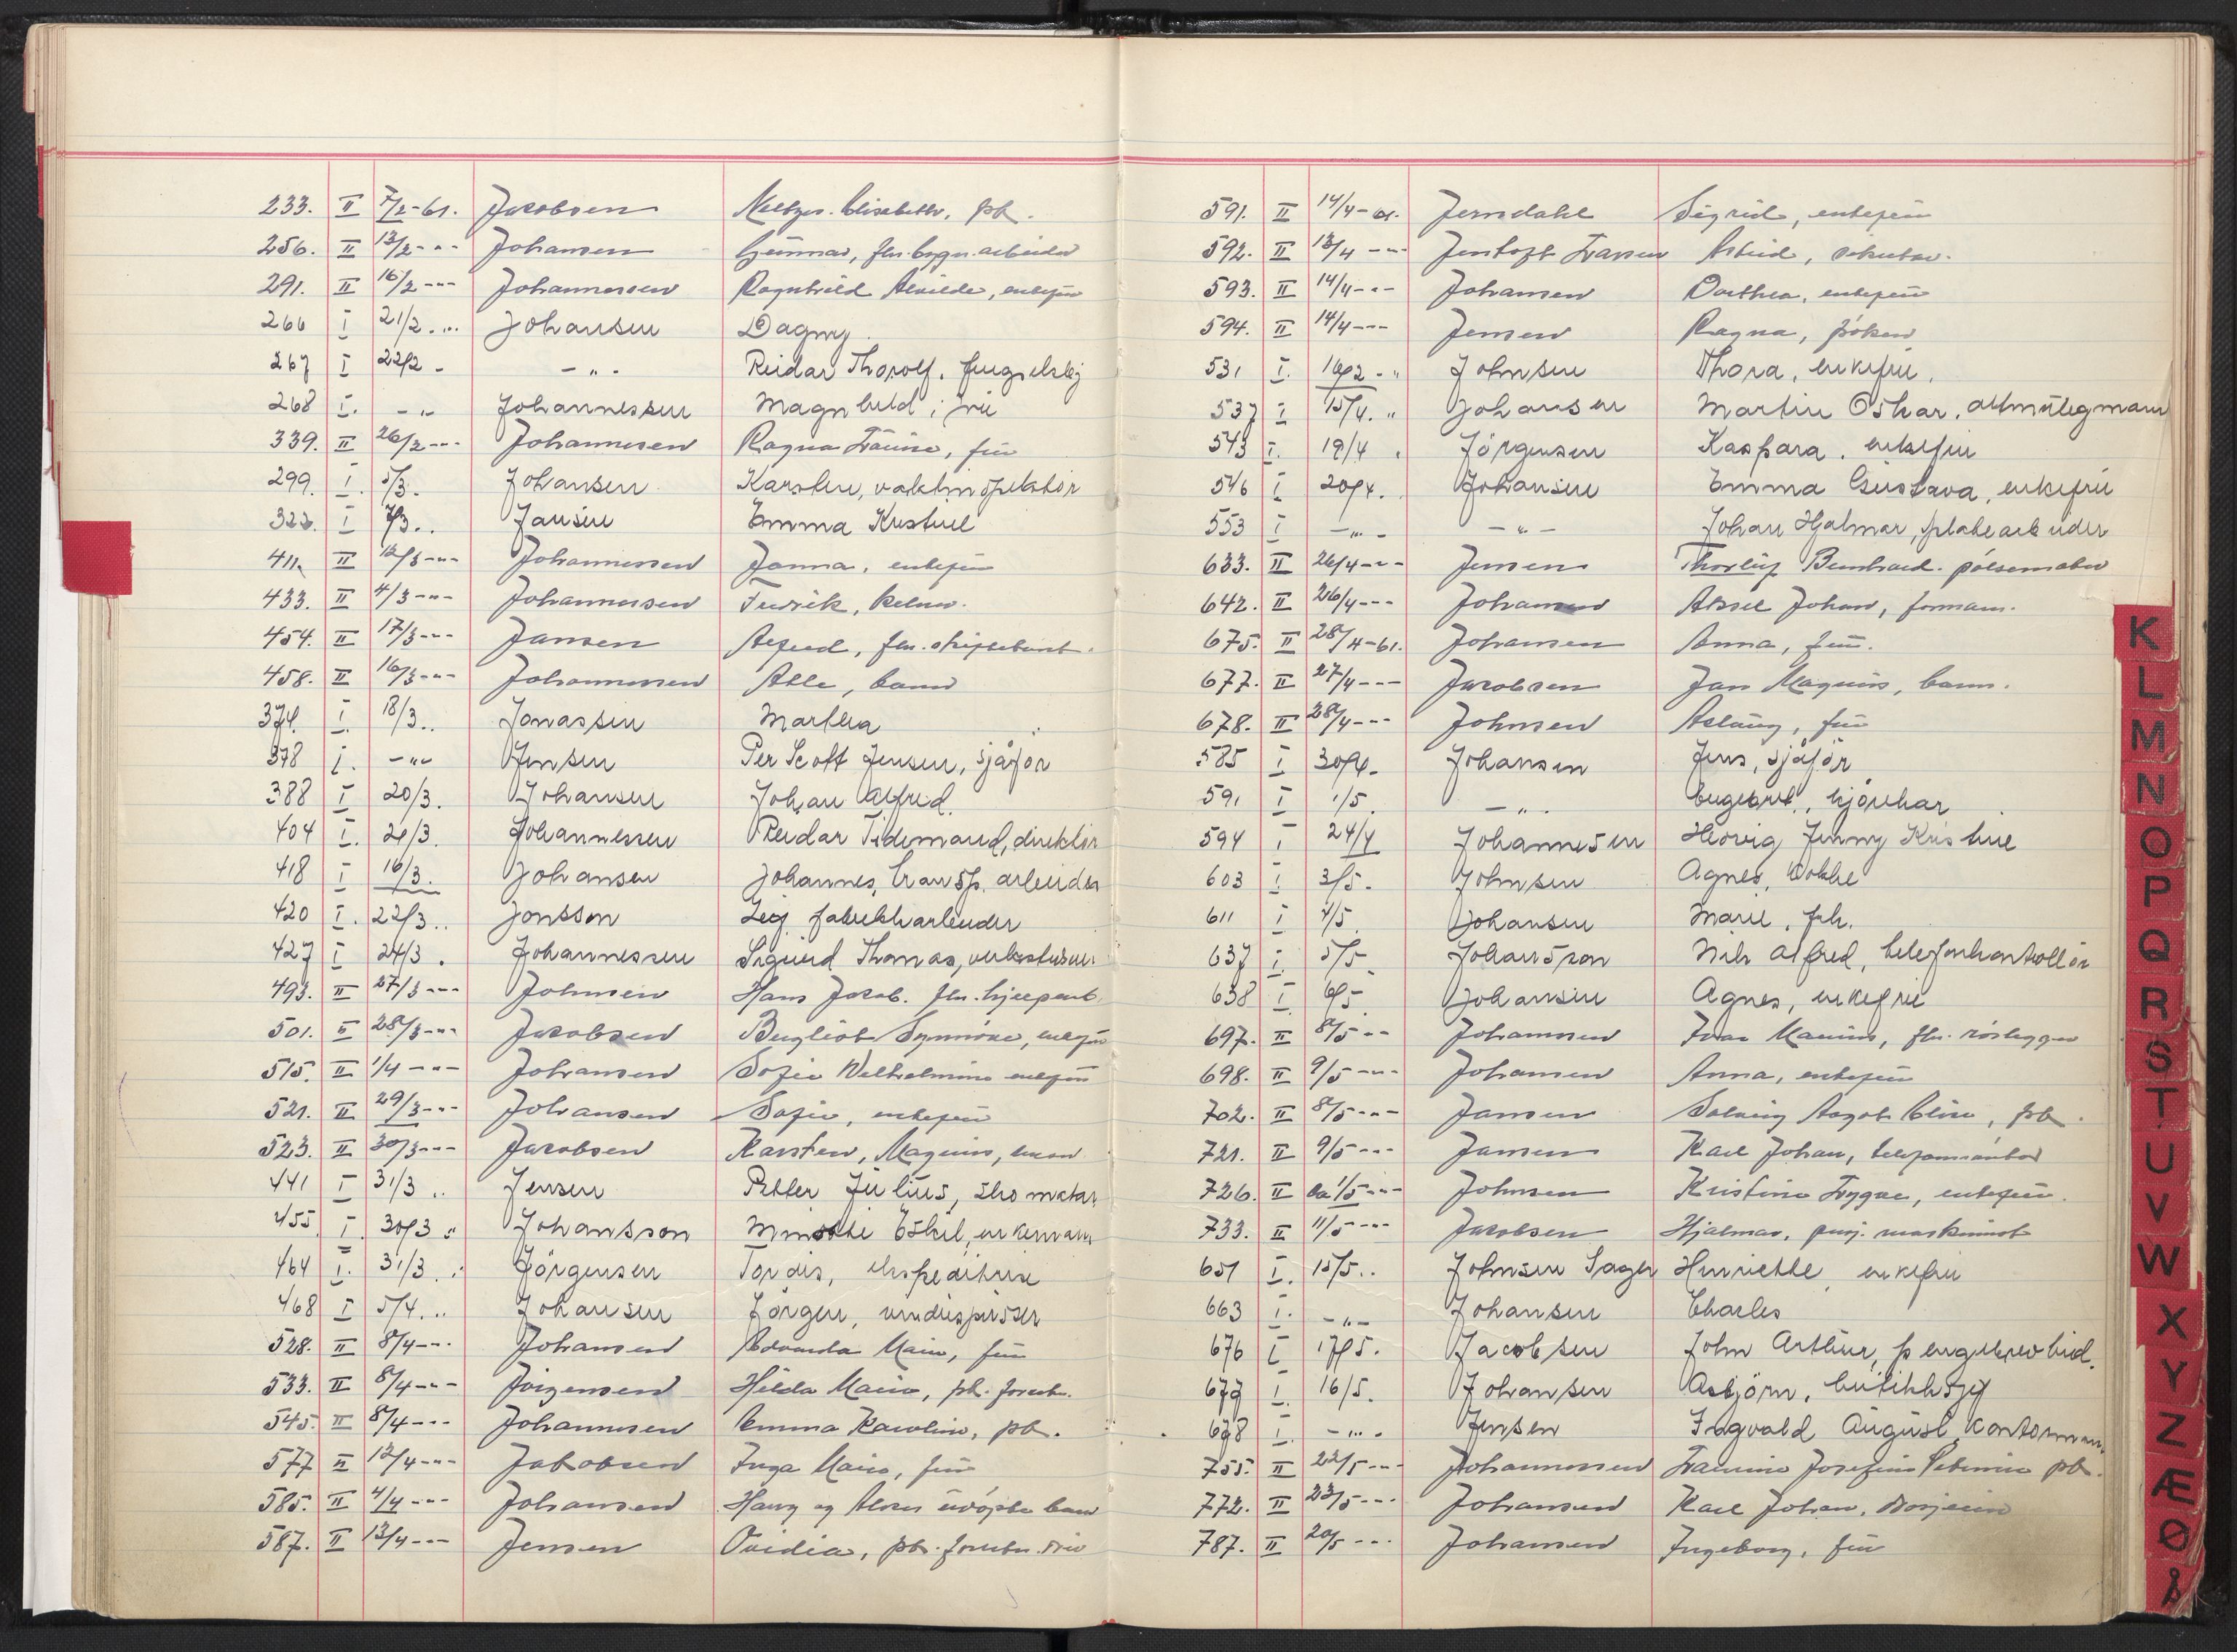 233. II 7/2-61. Jacobsen Elisabeth, pb.
256. II 13/2-"- Johansen Gunnar, fhv. bygn.arbeider
291. II 16/2-"- Johannessen Ragnhild Alvilde, enkefrü
266 I 21/2.".. Johansen Dagny
267 I 22/2 - -"- Reidar Thorolf.
268 I. -"- Johannessen Magnhild, frü
339. II 26/2-"- Johannesen Ragna, frü
299. I. 5/3. Johansen Karsten, vaktinspektör
323. I 7/3.. Jansen Emma Kristine
411. II 12/3-"- Johannessen Janna, enkefrü
433. II 4/3-"- Johannessen Fredrik, kelner.
454. II 17/3-"- Jansen Alfred, fhv.
458. II 16/3-"- Johannessen Atle, barn
374. I. 18/3.. Jonassen Martha
378 I. -"- Jensen Per Scott Jensen, sjåför
388 I 20/3. Johansen Johan Alfred.
404 I. 21/3. Johannessen Reidar Tidemand, direktör
418 I 16/3. Johansen Johannes, transp. arbeider
420 I. 22/3.. Jonsson fabrikkarbeider
427 I 24/3. Johannessen Sigurd Thomas,
493. II 27/3-"- Johnsen Hans Jacob. fhv.
501. II 28/3-"- Jacobsen Synnöve, enkefrü
515. II 1/4-"- Johansen Sofie Wilhelmine enkefrü
521. II 29/3-"- Johansen Sofie, enkefrü
523. II 30/3-"- Jacobsen Karsten, Magnus,
441 I 31/3.. Jensen Petter Jülius, skomaker
455 I. 30/3 " Johansson Eskil, enkemann
464 I. 31/3.. Jörgensen Tordis, ekspeditrise
468 I 5/4... Johansen Jörgen, vindüspüsser
528. II 8/4-"- Johansen Edvarda Marie, frü
533. II 8/4-"- Jörgensen Hilda Marie, pb. forretn.
545. II 8/4-"- Johannesen Emma Karoline, pb.
577 II 12/4-"- Jakobsen Inga Marie, frü
585. II 4/4-"- Johansen üdöpte barn
587. II 13/4-"- Jensen Ovidia, pb. forretn.driv
591. II 14/4-61. Jerndahl Sigrid, enkefrü
592. II 13/4-"- Jentoft Larsen Astrid, sekretær.
593. II 14/4-"- Johansen Dorthea, enkefrü
594. II 14/4-"- Jensen Ragna, fröken
531 I. Johnsen Thora, enkefrü.
537 I 15/4." Johansen Martin Oskar, altmüligmann
543 I. 19/4. Jörgensen Kaspara, enkefrü
546 I 20/4. Johansen Emma Güstava, enkefrü
553 I -"- -"- Johan Hjalmar, platearbeider
633. II 26/4-"- Jensen Thorleif Bernhard. pölsemaker
642. II 26/4-"- Johansen Aksel Johan, formann.
675. II 28/4-61. Johansen Anna, frü.
677. II 27/4-"- Jacobsen Jan Magnüs, barn.
678. II 28/4-"- Johnsen Aslaüg, frü
585 I 30/4- Johansen Jens, sjåför
591 I 1/5. -"-
594 I 24/4 Johannesen Hedvig Jenny Kristine
603 I. 3/5. Johnsen Agnes, kokke
611 I 4/5 Johansen Marie, frk.
637 I. 5/5 Johansson Nils Alfred, telefonkontollör
638 I. 6/5 Johansen Agnes, enkefrü
697. II 8/5-"- Johannsen fhv. rörlegger
698. II 9/5-"- Johansen Anna, enkefrü
702. II 8/5-"- Jansen Solveig Aagot Eline, pb.
721. II 9/5-"- Jansen Karl Johan, telefonmontör
726. II ca 1/5-"- Johnsen Kristine Trygve, enkefrü.
733. II 11/5-"- Jacobsen Hjalmar, pensj. maskinist
651 I. 15/5.. Johnsen Sager Henriette, enkefrü
663 I. -"- Johansen Charles
676 I 17/5. Jacobsen John Arthur, pengebrevbüd.
677 I. 16/5. Johansen Asbjörn, bütikksjef
678 I. -"- Jensen Ingvald Aügüst, kontormann
755. II 22/5-"- Johannessen Josefine pb.
772. II 23/5-"- Johansen Karl Johan,
787. II 20/5-"- Johansen Ingeborg, frü
K
L
M
N
O
P
Q
R
S
T
U
V
W
X
Y
Z
Æ
Ø
Å